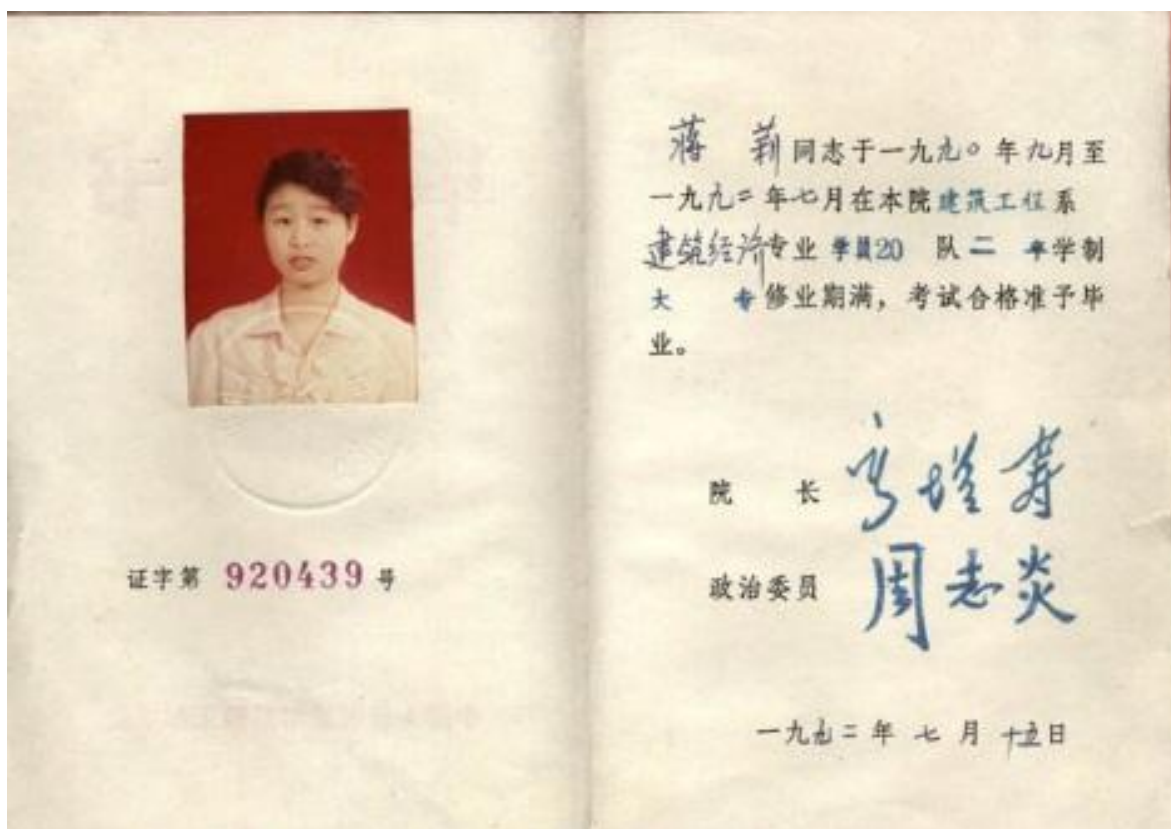 证字第 920439 号
蒋莉同志于一九九〇年九月至
一九九二年七月在本院建筑工程系
建筑经济专业 学员20 队二年学制
大专修业期满，考试合格准予毕
业。
院长 高增寿
政治委员 周志炎
一九九二年七月十五日